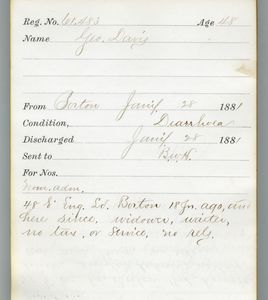 Reg. No. 61,483 Age 48
Name Geo. Davis
From Boston Jany 28 1881
Condition, Diarrhoea
Discharged Jany 28 1881
Sent to B.W.H.
For Nos.
Nom. adm.
48 S. Eng. Ld. Boston 18 yr. ago, and
here since. widower, waiter,
no tax. or service. no rels.